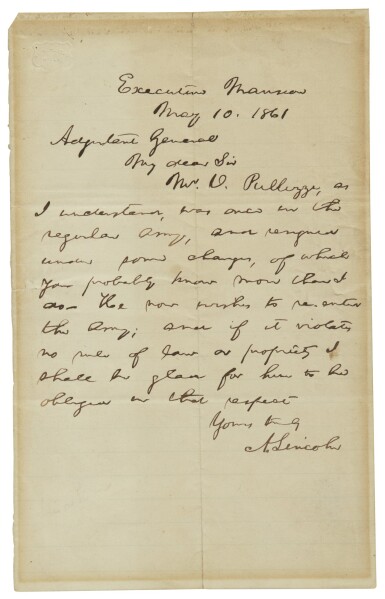 Executive Mansion
May 10. 1861
Adjutant General
My dear Sir
Mr. D. Pulizzi, as
I understand, was once in the
regular Army, and resigned
under some charges, of which
you probably know more than I
do. He now wishes to re-enter
the Army; and if it violates
no rule of law or propriety I
shall be glad for him to be
obliged in that respect
Yours truly
A. Lincoln